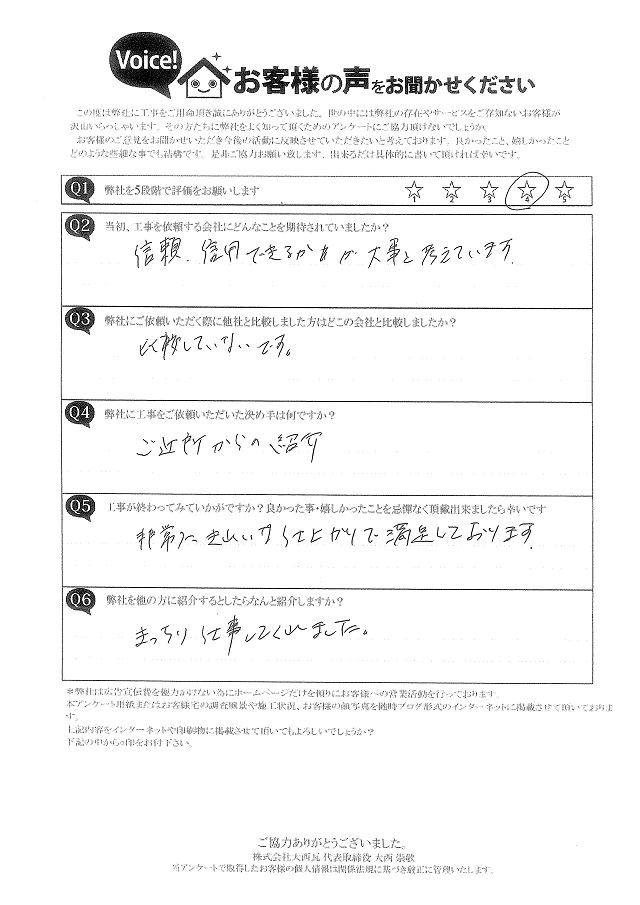 Voice!
お客様の声をお聞かせください
この度は弊社に工事をご用命頂き誠にありがとうございました。世の中には弊社の存在やサービスをご存知ないお客様が
沢山いらっしゃいます。その方たちに弊社をよく知って頂くためのアンケートにご協力頂けないでしょうか。
お客様のご意見をお聞かせいただき今後の活動に反映させていただきたいと考えております。良かったこと、嬉しかったこと
どのような些細な事でも結構です。是非ご協力お願い致します。出来るだけ具体的に書いて頂ければ幸いです。
Q1 弊社を5段階で評価をお願いします ☆1 ☆2 ☆3 ☆4 ☆5
Q2 当初、工事を依頼する会社にどんなことを期待されていましたか?
信頼、信用できるかが大事と考えています。
Q3 弊社にご依頼いただく際に他社と比較しました方はどこの会社と比較しましたか?
比較していないです。
Q4 弊社に工事をご依頼いただいた決め手は何ですか?
ご近所からの紹介
Q5 工事が終わってみていかがですか?良かった事・嬉しかったことを忌憚なく頂戴出来ましたら幸いです
非常に きれいな仕上がりで満足しております。
Q6 弊社を他の方に紹介するとしたらなんと紹介しますか?
きっちり仕事してくれました。
※弊社は広告宣伝費を極力かけない為にホームページだけを頼りにお客様への営業活動を行っております。
本アンケート用紙またはお客様宅の調査風景や施工状況、お客様の顔写真を随時ブログ形式のインターネットに掲載させて頂いておりま
す。
上記内容をインターネットや印刷物に掲載させて頂いてもよろしいでしょうか?
下記の中から○印をお付下さい。
ご協力ありがとうございました。
株式会社大西瓦 代表取締役 大西 崇敬
当アンケートで取得したお客様の個人情報は関係法規に基づき厳正に管理いたします。